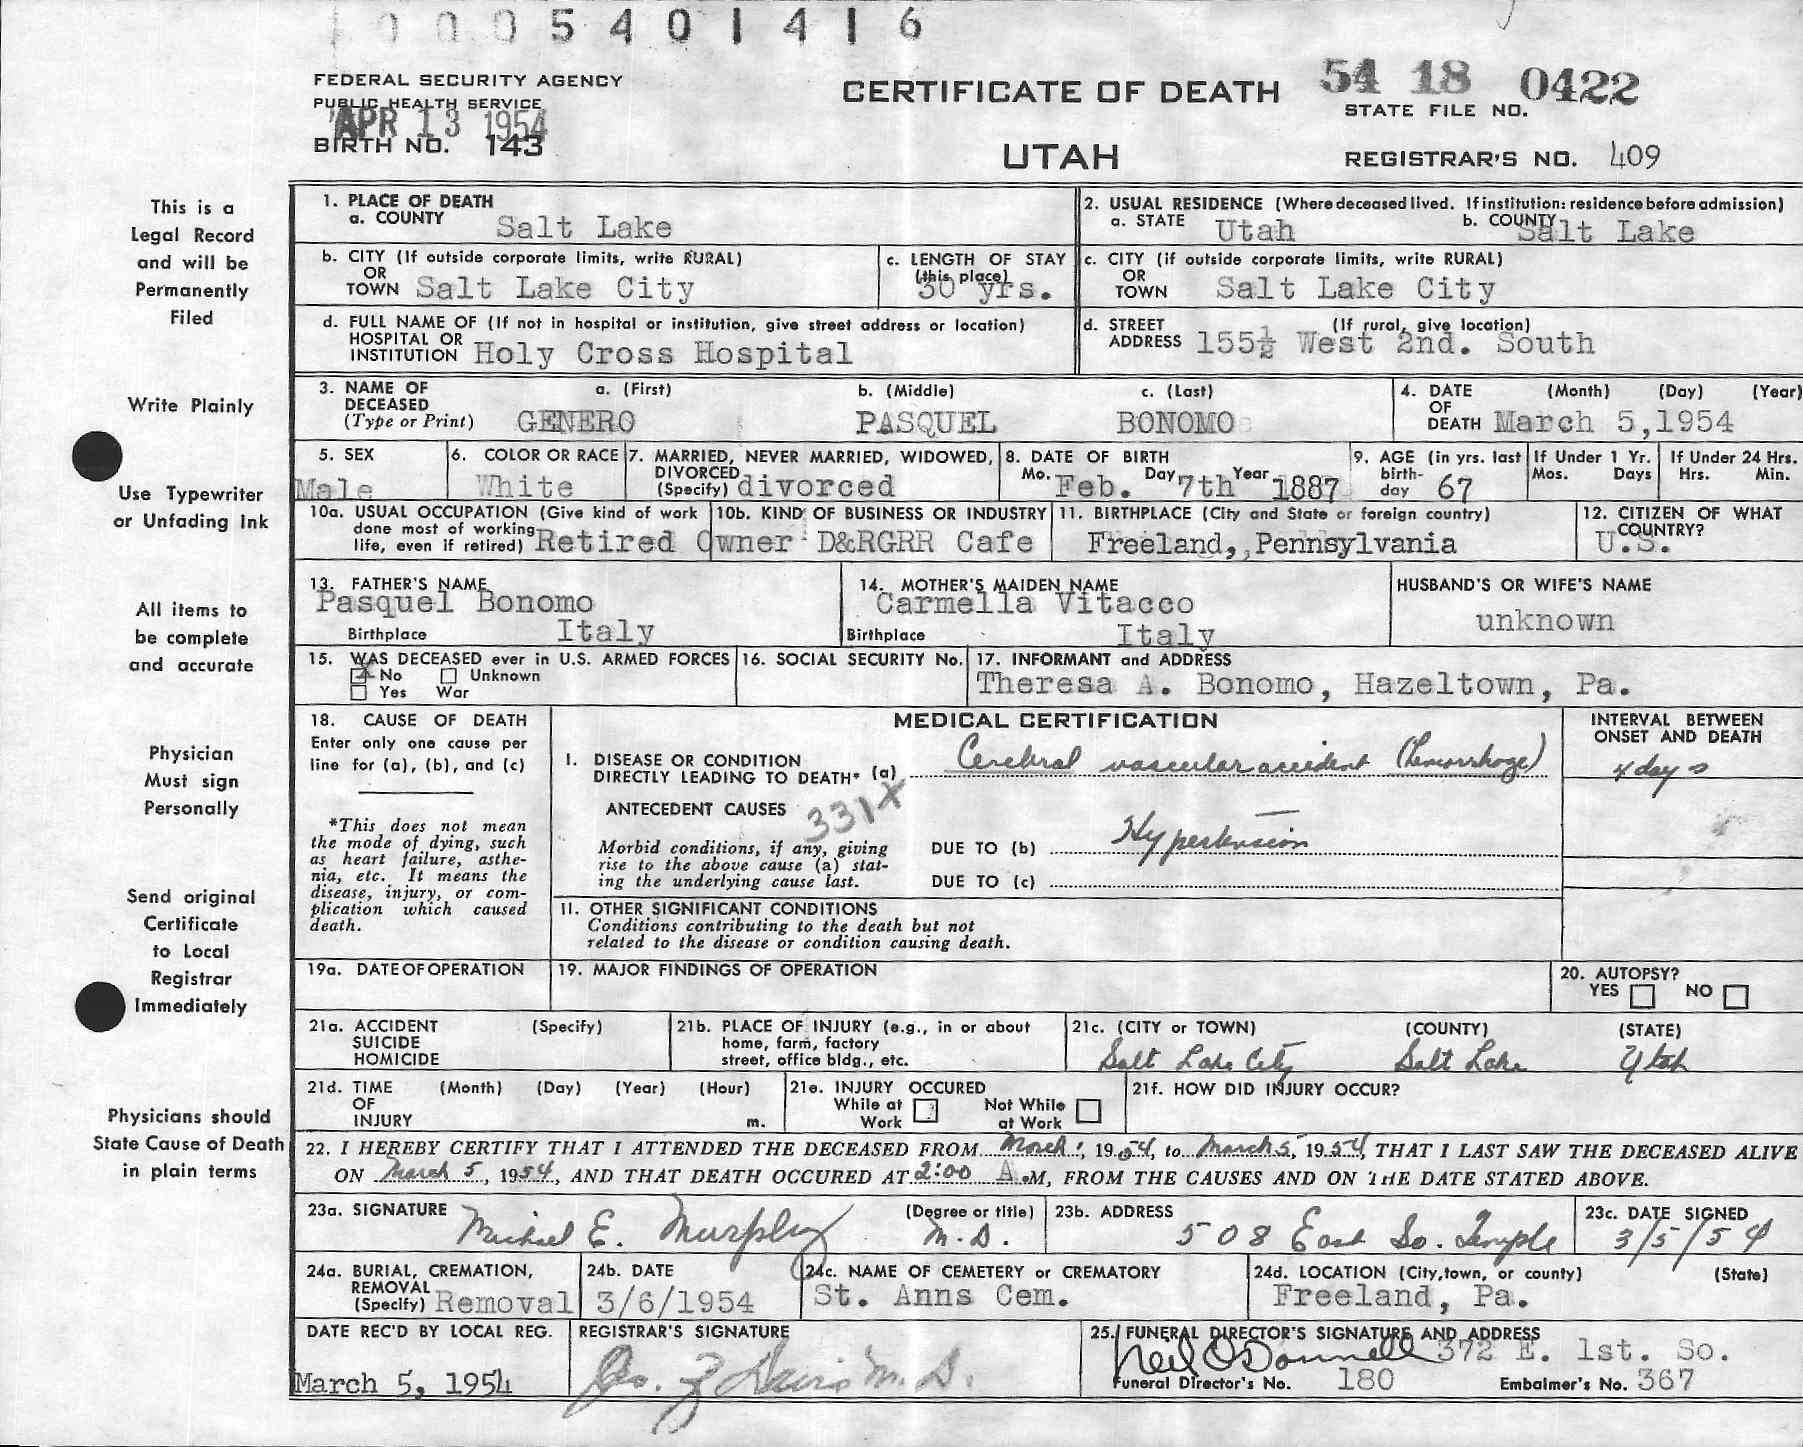 1 0 0 0 5 4 0 1 4 1 6
FEDERAL SECURITY AGENCY
PUBLIC HEALTH SERVICE
APR 13 1954
BIRTH NO. 143
CERTIFICATE OF DEATH
UTAH
54 18 0422
STATE FILE NO.
REGISTRAR'S NO. 409
This is a
Legal Record
and will be
Permanently
Filed
Write Plainly
Use Typewriter
or Unfading Ink
All items to
be complete
and accurate
Physician
Must sign
Personally
Send original
Certificate
to Local
Registrar
Immediately
Physicians should
State Cause of Death
in plain terms
1. PLACE OF DEATH
a. COUNTY Salt Lake
2. USUAL RESIDENCE (Where deceased lived. If institution: residence before admission)
a. STATE Utah b. COUNTY Salt Lake
b. CITY (If outside corporate limits, write RURAL)
OR
TOWN Salt Lake City
c. LENGTH OF STAY
(this place)
30 yrs.
c. CITY (if outside corporate limits, write RURAL)
OR
TOWN Salt Lake City
d. FULL NAME OF (If not in hospital or institution, give street address or location)
HOSPITAL OR
INSTITUTION Holy Cross Hospital
d. STREET (If rural, give location)
ADDRESS 155½ West 2nd. South
3. NAME OF a. (First) b. (Middle) c. (Last)
DECEASED
(Type or Print) GENERO PASQUEL BONOMO
4. DATE (Month) (Day) (Year)
OF
DEATH March 5, 1954
5. SEX
Male
6. COLOR OR RACE
White
7. MARRIED, NEVER MARRIED, WIDOWED,
DIVORCED
(Specify) divorced
8. DATE OF BIRTH
Mo. Feb. Day 7th Year 1887
9. AGE (in yrs. last
birth-
day 67
If Under 1 Yr.
Mos. Days
If Under 24 Hrs.
Hrs. Min.
10a. USUAL OCCUPATION (Give kind of work
done most of working
life, even if retired) Retired Owner
10b. KIND OF BUSINESS OR INDUSTRY
D&RGRR Cafe
11. BIRTHPLACE (City and State or foreign country)
Freeland, Pennsylvania
12. CITIZEN OF WHAT
COUNTRY?
U.S.
13. FATHER'S NAME
Pasquel Bonomo
Birthplace Italy
14. MOTHER'S MAIDEN NAME
Carmella Vitacco
Birthplace Italy
HUSBAND'S OR WIFE'S NAME
unknown
15. WAS DECEASED ever in U.S. ARMED FORCES
X No Unknown
Yes War
16. SOCIAL SECURITY No.
17. INFORMANT and ADDRESS
Theresa A. Bonomo, Hazeltown, Pa.
18. CAUSE OF DEATH
Enter only one cause per
line for (a), (b), and (c)
*This does not mean
the mode of dying, such
as heart failure, asthe-
nia, etc. It means the
disease, injury, or com-
plication which caused
death.
MEDICAL CERTIFICATION
INTERVAL BETWEEN
ONSET AND DEATH
I. DISEASE OR CONDITION
DIRECTLY LEADING TO DEATH* (a) Cerebral vascular accident (hemorrhage)
4 days
ANTECEDENT CAUSES 331X
Morbid conditions, if any, giving
rise to the above cause (a) stat-
ing the underlying cause last.
DUE TO (b) Hypertension
DUE TO (c)
11. OTHER SIGNIFICANT CONDITIONS
Conditions contributing to the death but not
related to the disease or condition causing death.
19a. DATE OF OPERATION
19. MAJOR FINDINGS OF OPERATION
20. AUTOPSY?
YES NO
21a. ACCIDENT (Specify)
SUICIDE
HOMICIDE
21b. PLACE OF INJURY (e.g., in or about
home, farm, factory
street, office bldg., etc.
21c. (CITY or TOWN) (COUNTY) (STATE)
Salt Lake City Salt Lake Utah
21d. TIME (Month) (Day) (Year) (Hour)
OF
INJURY m.
21e. INJURY OCCURED
While at Not While
Work at Work
21f. HOW DID INJURY OCCUR?
22. I HEREBY CERTIFY THAT I ATTENDED THE DECEASED FROM March 1, 1954, to March 5, 1954, THAT I LAST SAW THE DECEASED ALIVE
ON March 5, 1954, AND THAT DEATH OCCURED AT 2:00 A.M, FROM THE CAUSES AND ON THE DATE STATED ABOVE.
23a. SIGNATURE (Degree or title)
Michael E. Murphy M.D.
23b. ADDRESS
508 East So. Temple
23c. DATE SIGNED
3/5/54
24a. BURIAL, CREMATION,
REMOVAL
(Specify) Removal
24b. DATE
3/6/1954
24c. NAME OF CEMETERY or CREMATORY
St. Anns Cem.
24d. LOCATION (City, town, or county) (State)
Freeland, Pa.
DATE REC'D BY LOCAL REG.
March 5, 1954
REGISTRAR'S SIGNATURE
Geo. Z Davis M.D.
25. FUNERAL DIRECTOR'S SIGNATURE AND ADDRESS
Neil O'Donnell 372 E. 1st. So.
Funeral Director's No. 180 Embalmer's No. 367